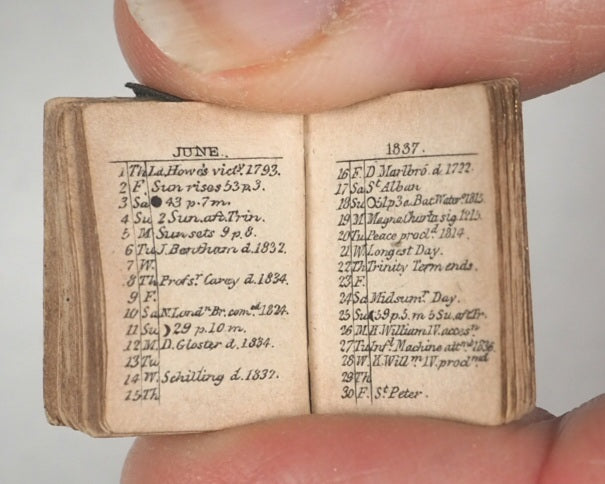 JUNE.
1 Th Ld. Howe's victy. 1793.
2 F. Sun rises 53 p. 3.
3 Sa ● 43 p. 7 m.
4 Su 2 Sun. aft. Trin.
5 M Sun sets 9 p. 8.
6 Tu J. Bentham d. 1832.
7 W.
8 Th Profsr. Carey d. 1834.
9 F.
10 Sa N. Londn. Br. comd. 1824.
11 Su ☽ 29 p. 10. m.
12 M. D. Gloster d. 1834.
13 Tu
14 W. Schilling d. 1837.
15 Th
1837.
16 F. D Marlbro'. d. 1722.
17 Sa St. Alban
18 Su ○ 51 p 3 a. Bat Water. 1815.
19 M Magna Charta sig. 1215.
20 Tu Peace procld. 1814.
21 W Longest Day.
22 Th Trinity Term ends.
23 F.
24 Sa Midsumr. Day.
25 Su ☾ 59 p. 5. m 5 Su. aft Tr.
26 M. K. William IV. access.
27 Tu Infl. Machine attd. 1836.
28 W. K. Willm. IV. proclmd
29 Th
30 F. St. Peter.